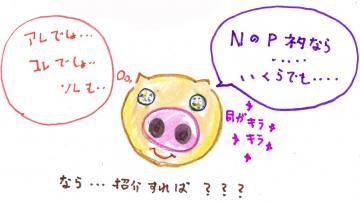 アレでは・・・
コレでしょ・・
ソレも・・
NのPネタなら
・・・・・
いくらでも・・・・
目がキラ
キラ
なら・・・紹介すれば???